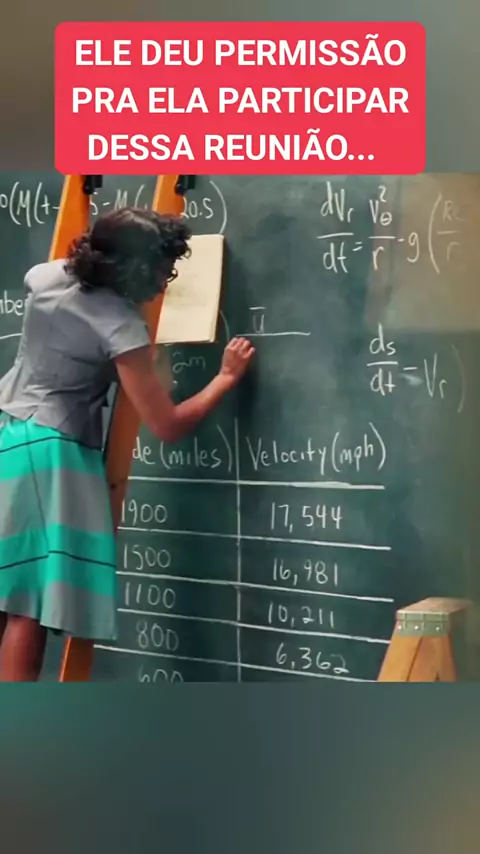 ELE DEU PERMISSÃO
PRA ELA PARTICIPAR
DESSA REUNIÃO...
20.5)
dVr/dt = Vθ²/r - g(
ū
ds/dt = Vr)
de (miles) Velocity (mph)
1900 17,544
1500 16,981
1100 10,211
800 6,362